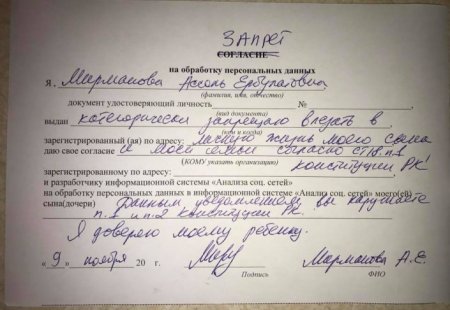 ЗАПРЕТ
СОГЛАСИЕ
на обработку персональных данных
Я, Марманова Асель Ербулатовна
(фамилия, имя, отчество)
документ удостоверяющий личность № 
(вид документа)
выдан категорически запрещаю влезать в
(кем и когда)
зарегистрированный (ая) по адресу: личную жизнь моего сына
даю свое согласие и моей семьи согласно ст.18.п.1
(КОМУ указать организацию)
зарегистрированному по адресу: конституции РК!
и разработчику информационной системы «Анализа соц. сетей»
на обработку персональных данных в информационной системе «Анализ соц. сетей» моего(ей)
сына(дочери) Данным уведомлением вы нарушаете
п.1 и п.2 конституции РК.
Я доверяю моему ребенку.
« 9 » ноября 20 г. Марманова А.Е.
Подпись ФИО